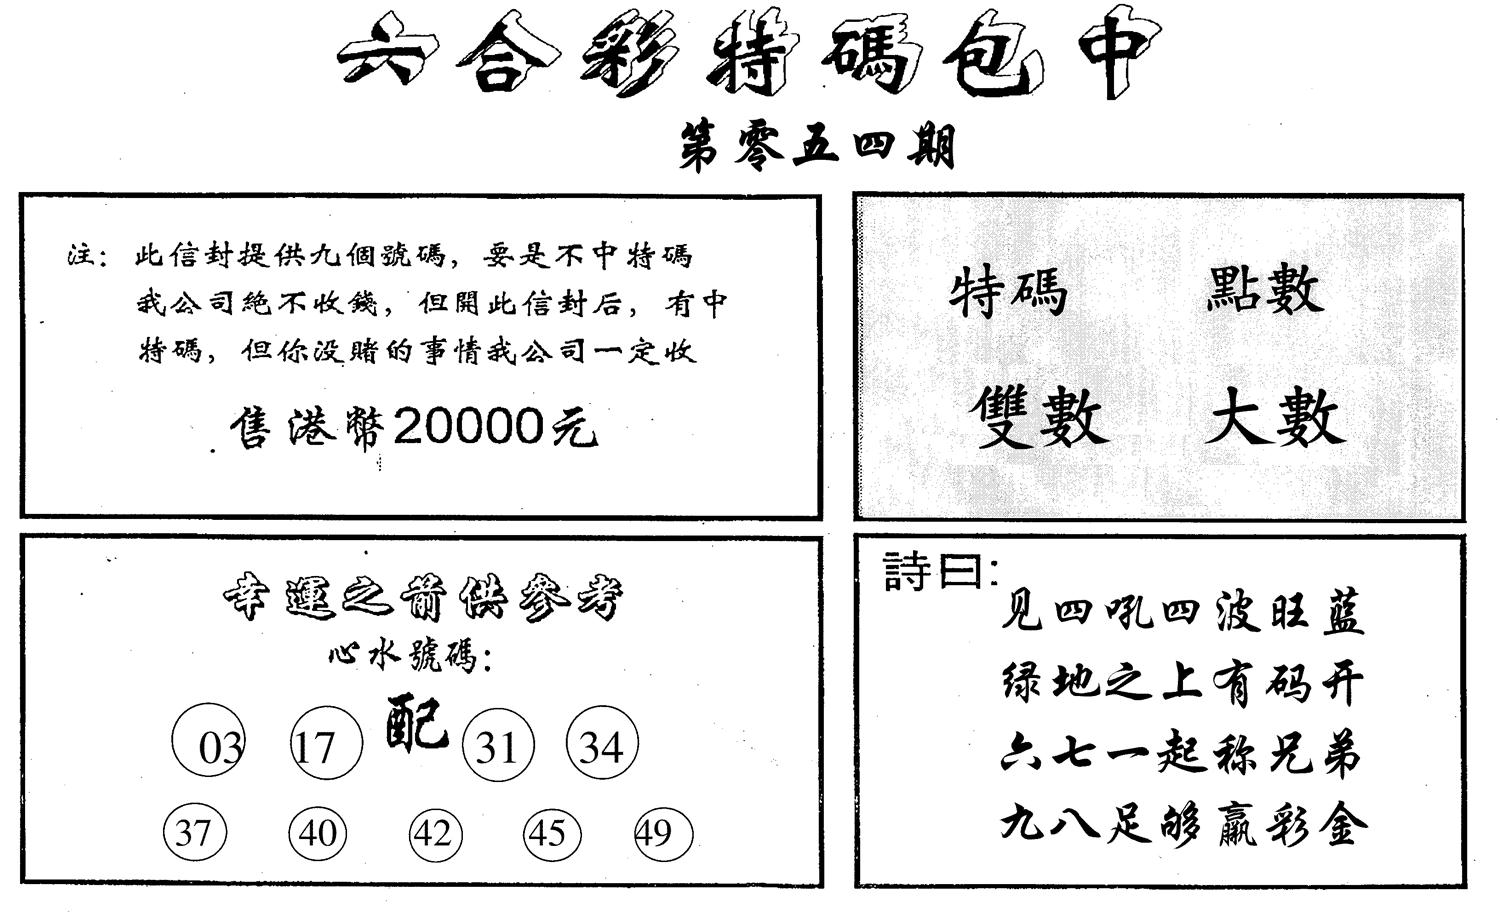 六合彩特碼包中
第零五四期
注：此信封提供九個號碼，要是不中特碼
我公司絕不收錢，但開此信封后，有中
特碼，但你没賭的事情我公司一定收
售港幣20000元
特碼 點數
雙數 大數
幸運之箭供參考
心水號碼：
03 17 配 31 34
37 40 42 45 49
詩曰：
见四吼四波旺蓝
绿地之上有码开
六七一起称兄弟
九八足够赢彩金